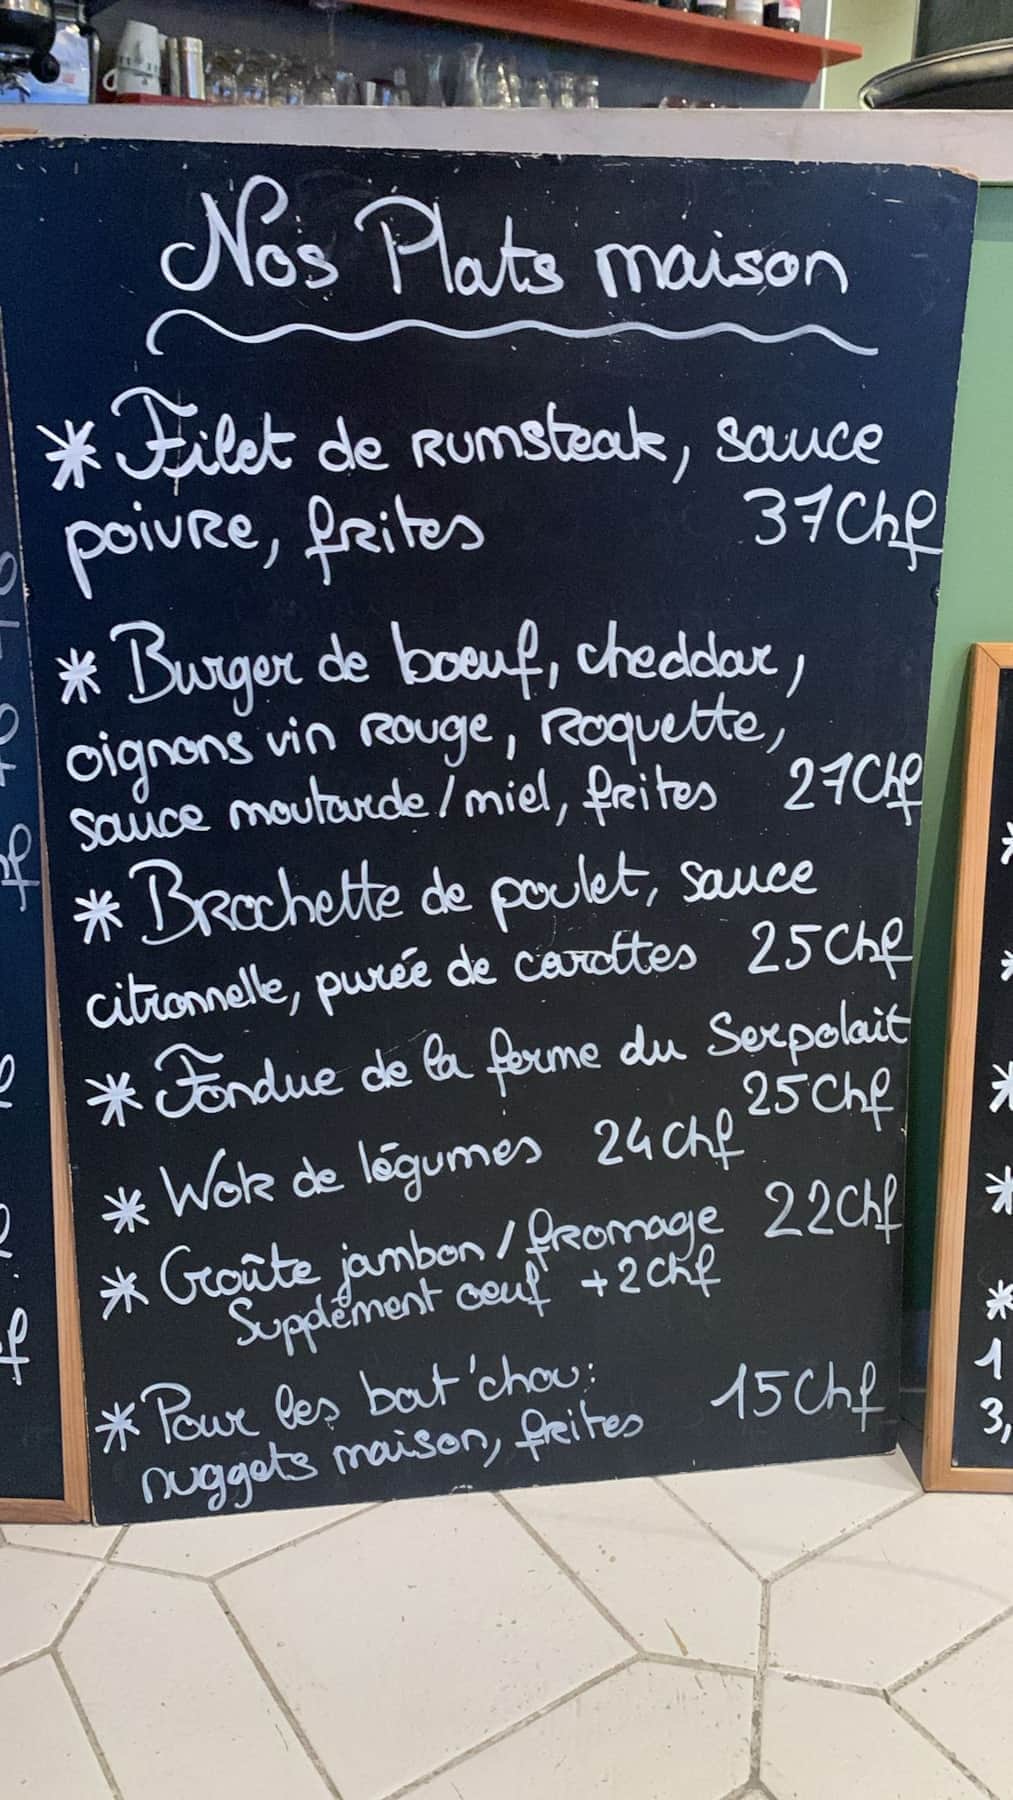 Nos Plats maison
* Filet de Rumsteak, sauce
poivre, frites 37Chf
* Burger de boeuf, cheddar,
oignons vin rouge, Roquette,
sauce moutarde/miel, frites 27Chf
* Brochette de poulet, sauce
citronnelle, purée de carottes 25Chf
* Fondue de la ferme du Serpolait
25Chf
* Wok de légumes 24Chf
* Croûte jambon/fromage 22Chf
Supplément oeuf +2Chf
* Pour les bout'chou: 15Chf
nuggets maison, frites